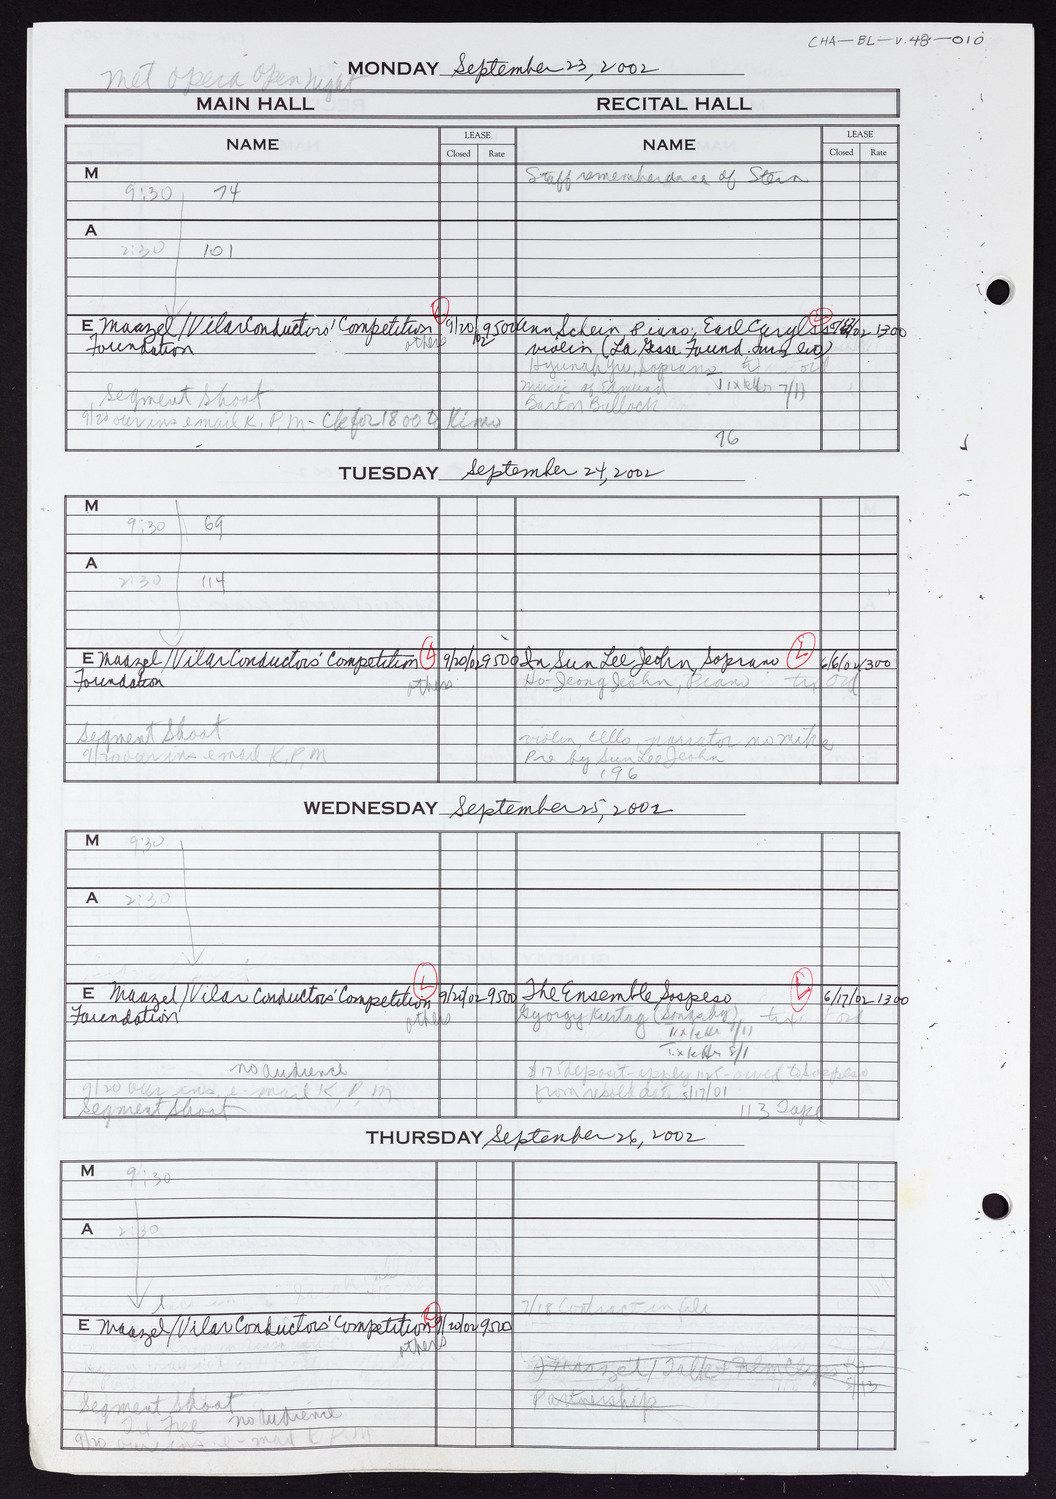 CHA-BL-V.48-010
Met Opera Open Night
MONDAY September 23, 2002
MAIN HALL RECITAL HALL
NAME LEASE NAME LEASE
Closed Rate Closed Rate
M Staff rememberance of Stern
9:30 74
A
2:30 101
E Maazel/Vilar Conductors' Competition L 9/20/02 9500 Ann Schein Piano, Earl Carlyss L 1300
Foundation others violin (La Gesse Found.
Hyunah Yu, Soprano
Segment Shoot Music of Edmund Tix letter 7/11
9/20 our ins email K, P, M - Ck for 1800 to Kimo Barton Bullock
76
TUESDAY September 24, 2002
M
9:30 69
A
2:30 114
E Maazel/Vilar Conductors' Competition L 9/20/02 9500 In Sun Lee Jeohn, Soprano L 6/6/02 1300
Foundation others Ho-Jeong Jeohn, Piano tix ord
Segment Shoot violin, cello, narrator no mike
9/20 our ins email K, P, M Pre by Sun Lee Jeohn
196
WEDNESDAY September 25, 2002
M 9:30
A 2:30
E Maazel/Vilar Conductors' Competition L 9/20/02 9500 The Ensemble Sospeso L 6/17/02 1300
Foundation others Gyorgy Kurtag (Songs by) tix ord
Tix letter 7/11
Tix letter 8/1
no audience $175 deposit apply 1125 - owed to Sospeso
9/20 our ins e-mail K, P, M from resold date 5/17/01
Segment Shoot 113 Tape
THURSDAY September 26, 2002
M 9:30
A 2:30
7/18 Contract in file
E Maazel/Vilar Conductors' Competition L 9/20/02 9500
others
Maazel/Talk + Film Clips
Segment Shoot Partnership
Free no audience
9/20 our ins e-mail K P M